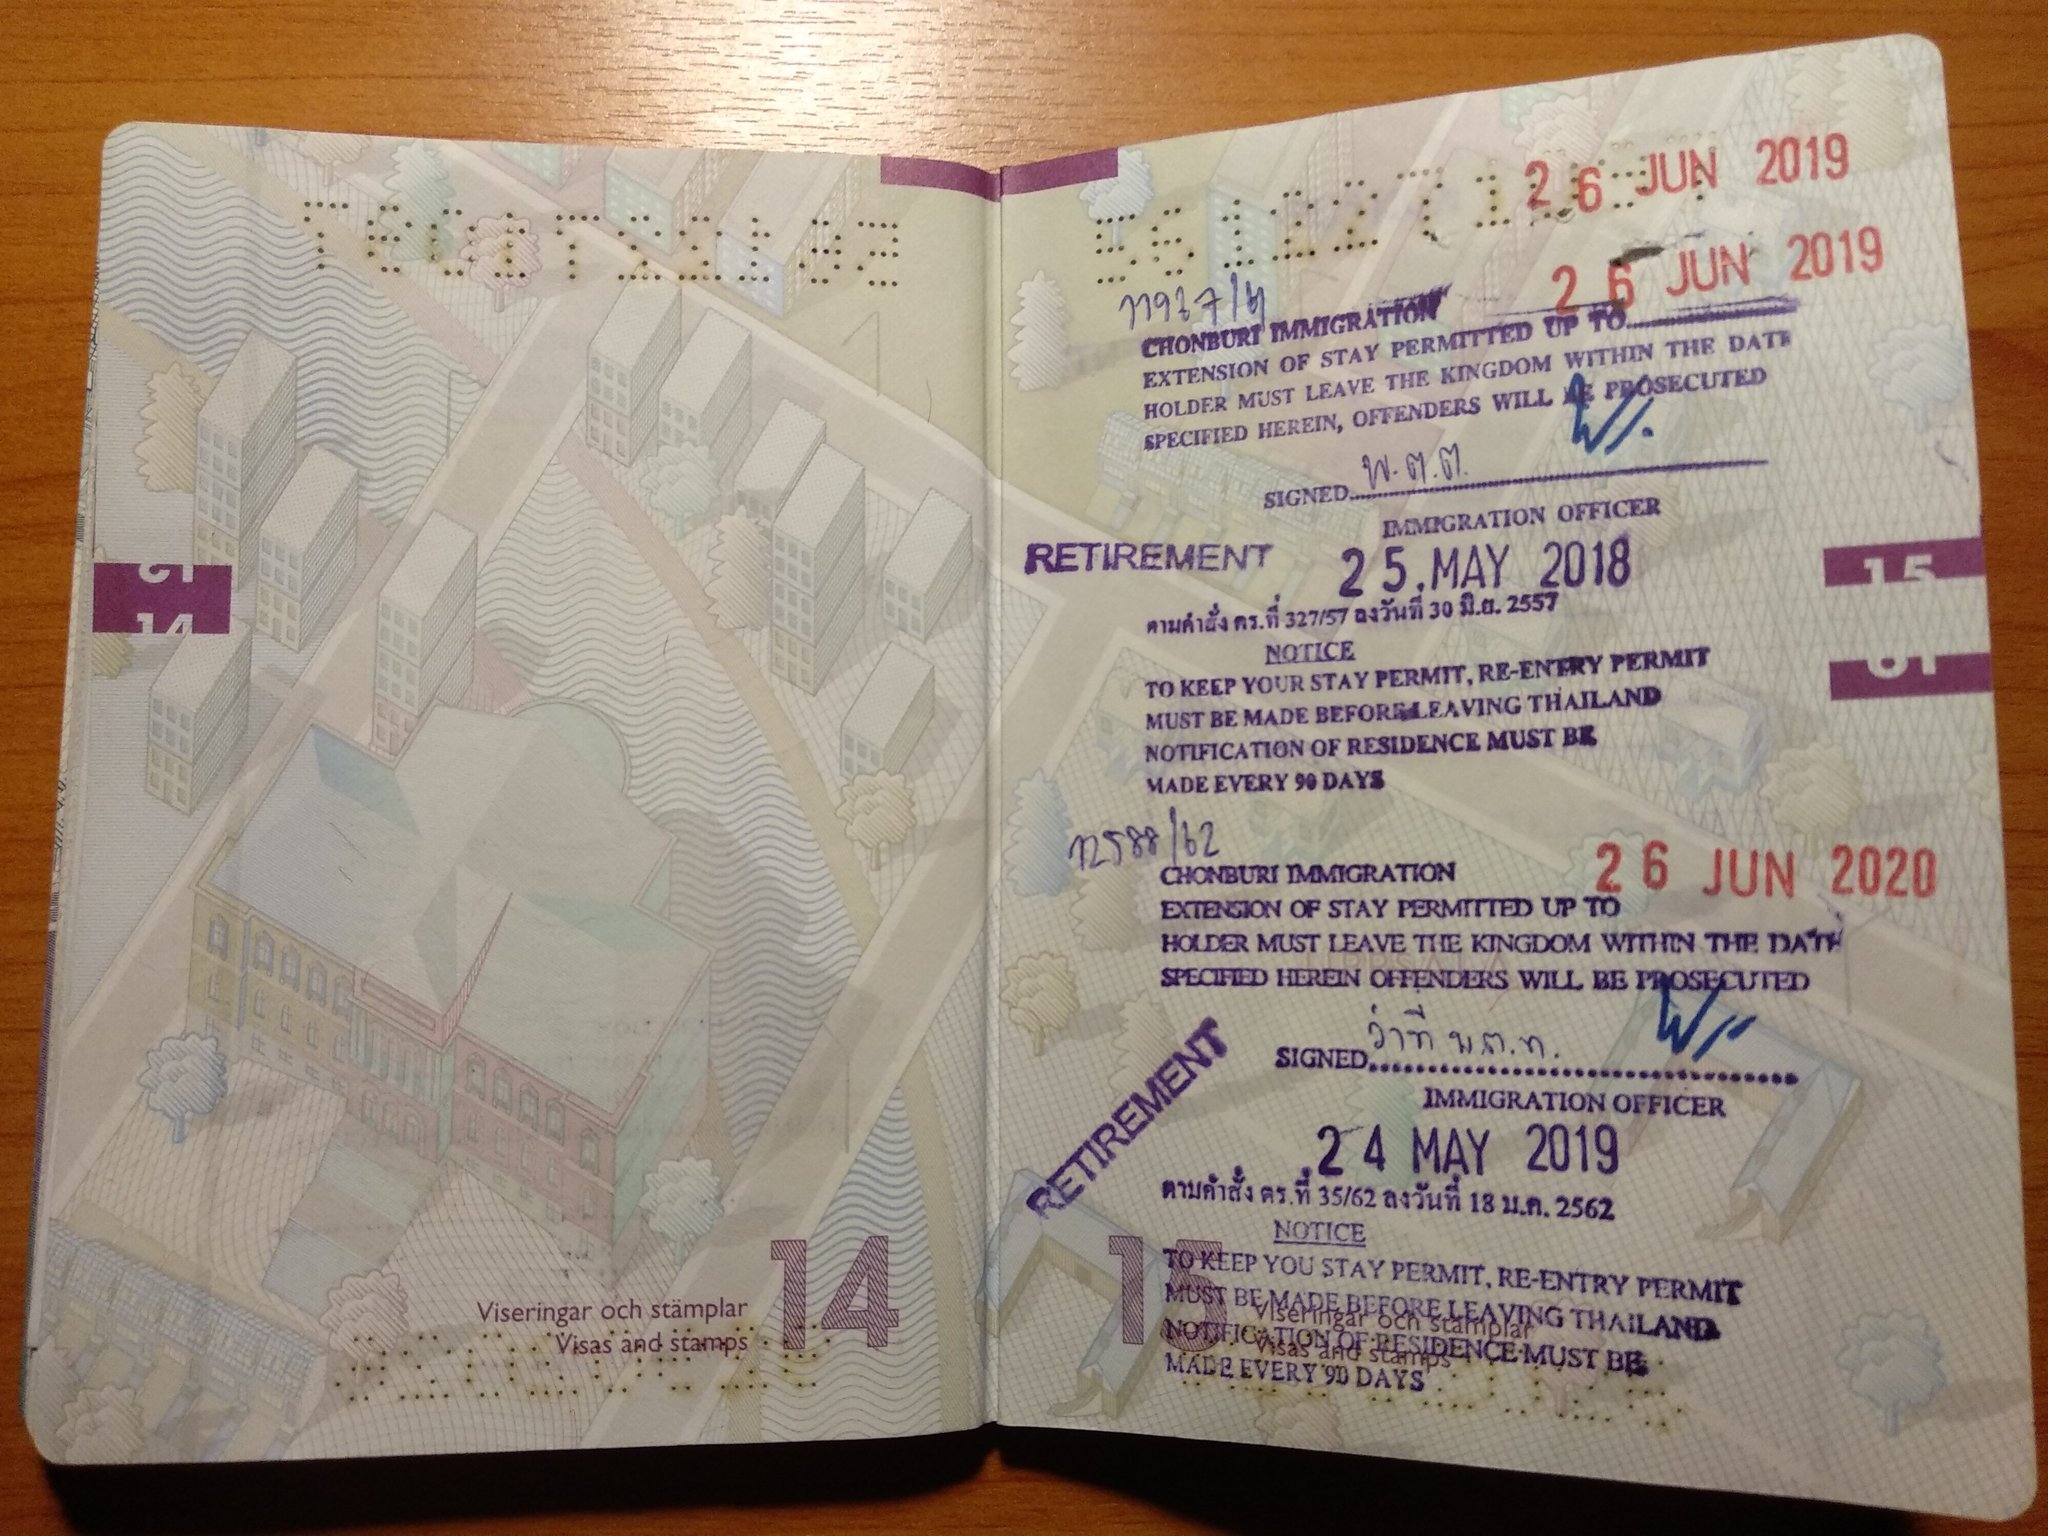 Viseringar och stämplar
Visas and stamps
14
26 JUN 2019
26 JUN 2019
CHONBURI IMMIGRATION
EXTENSION OF STAY PERMITTED UP TO
HOLDER MUST LEAVE THE KINGDOM WITHIN THE DATE
SPECIFIED HEREIN, OFFENDERS WILL BE PROSECUTED
SIGNED พ.ต.ต.
IMMIGRATION OFFICER
RETIREMENT 25. MAY 2018
ตามคำสั่ง ตร.ที่ 327/57 ลงวันที่ 30 มิ.ย. 2557
NOTICE
TO KEEP YOUR STAY PERMIT, RE-ENTRY PERMIT
MUST BE MADE BEFORE LEAVING THAILAND
NOTIFICATION OF RESIDENCE MUST BE
MADE EVERY 90 DAYS
15
26 JUN 2020
CHONBURI IMMIGRATION
EXTENSION OF STAY PERMITTED UP TO
HOLDER MUST LEAVE THE KINGDOM WITHIN THE DATE
SPECIFIED HEREIN OFFENDERS WILL BE PROSECUTED
SIGNED ว่าที่ พ.ต.ท.
IMMIGRATION OFFICER
RETIREMENT
24 MAY 2019
ตามคำสั่ง ตร.ที่ 35/62 ลงวันที่ 18 ม.ค. 2562
NOTICE
TO KEEP YOU STAY PERMIT, RE-ENTRY PERMIT
MUST BE MADE BEFORE LEAVING THAILAND
NOTIFICATION OF RESIDENCE MUST BE
MADE EVERY 90 DAYS
15
Viseringar och stämplar
Visas and stamps